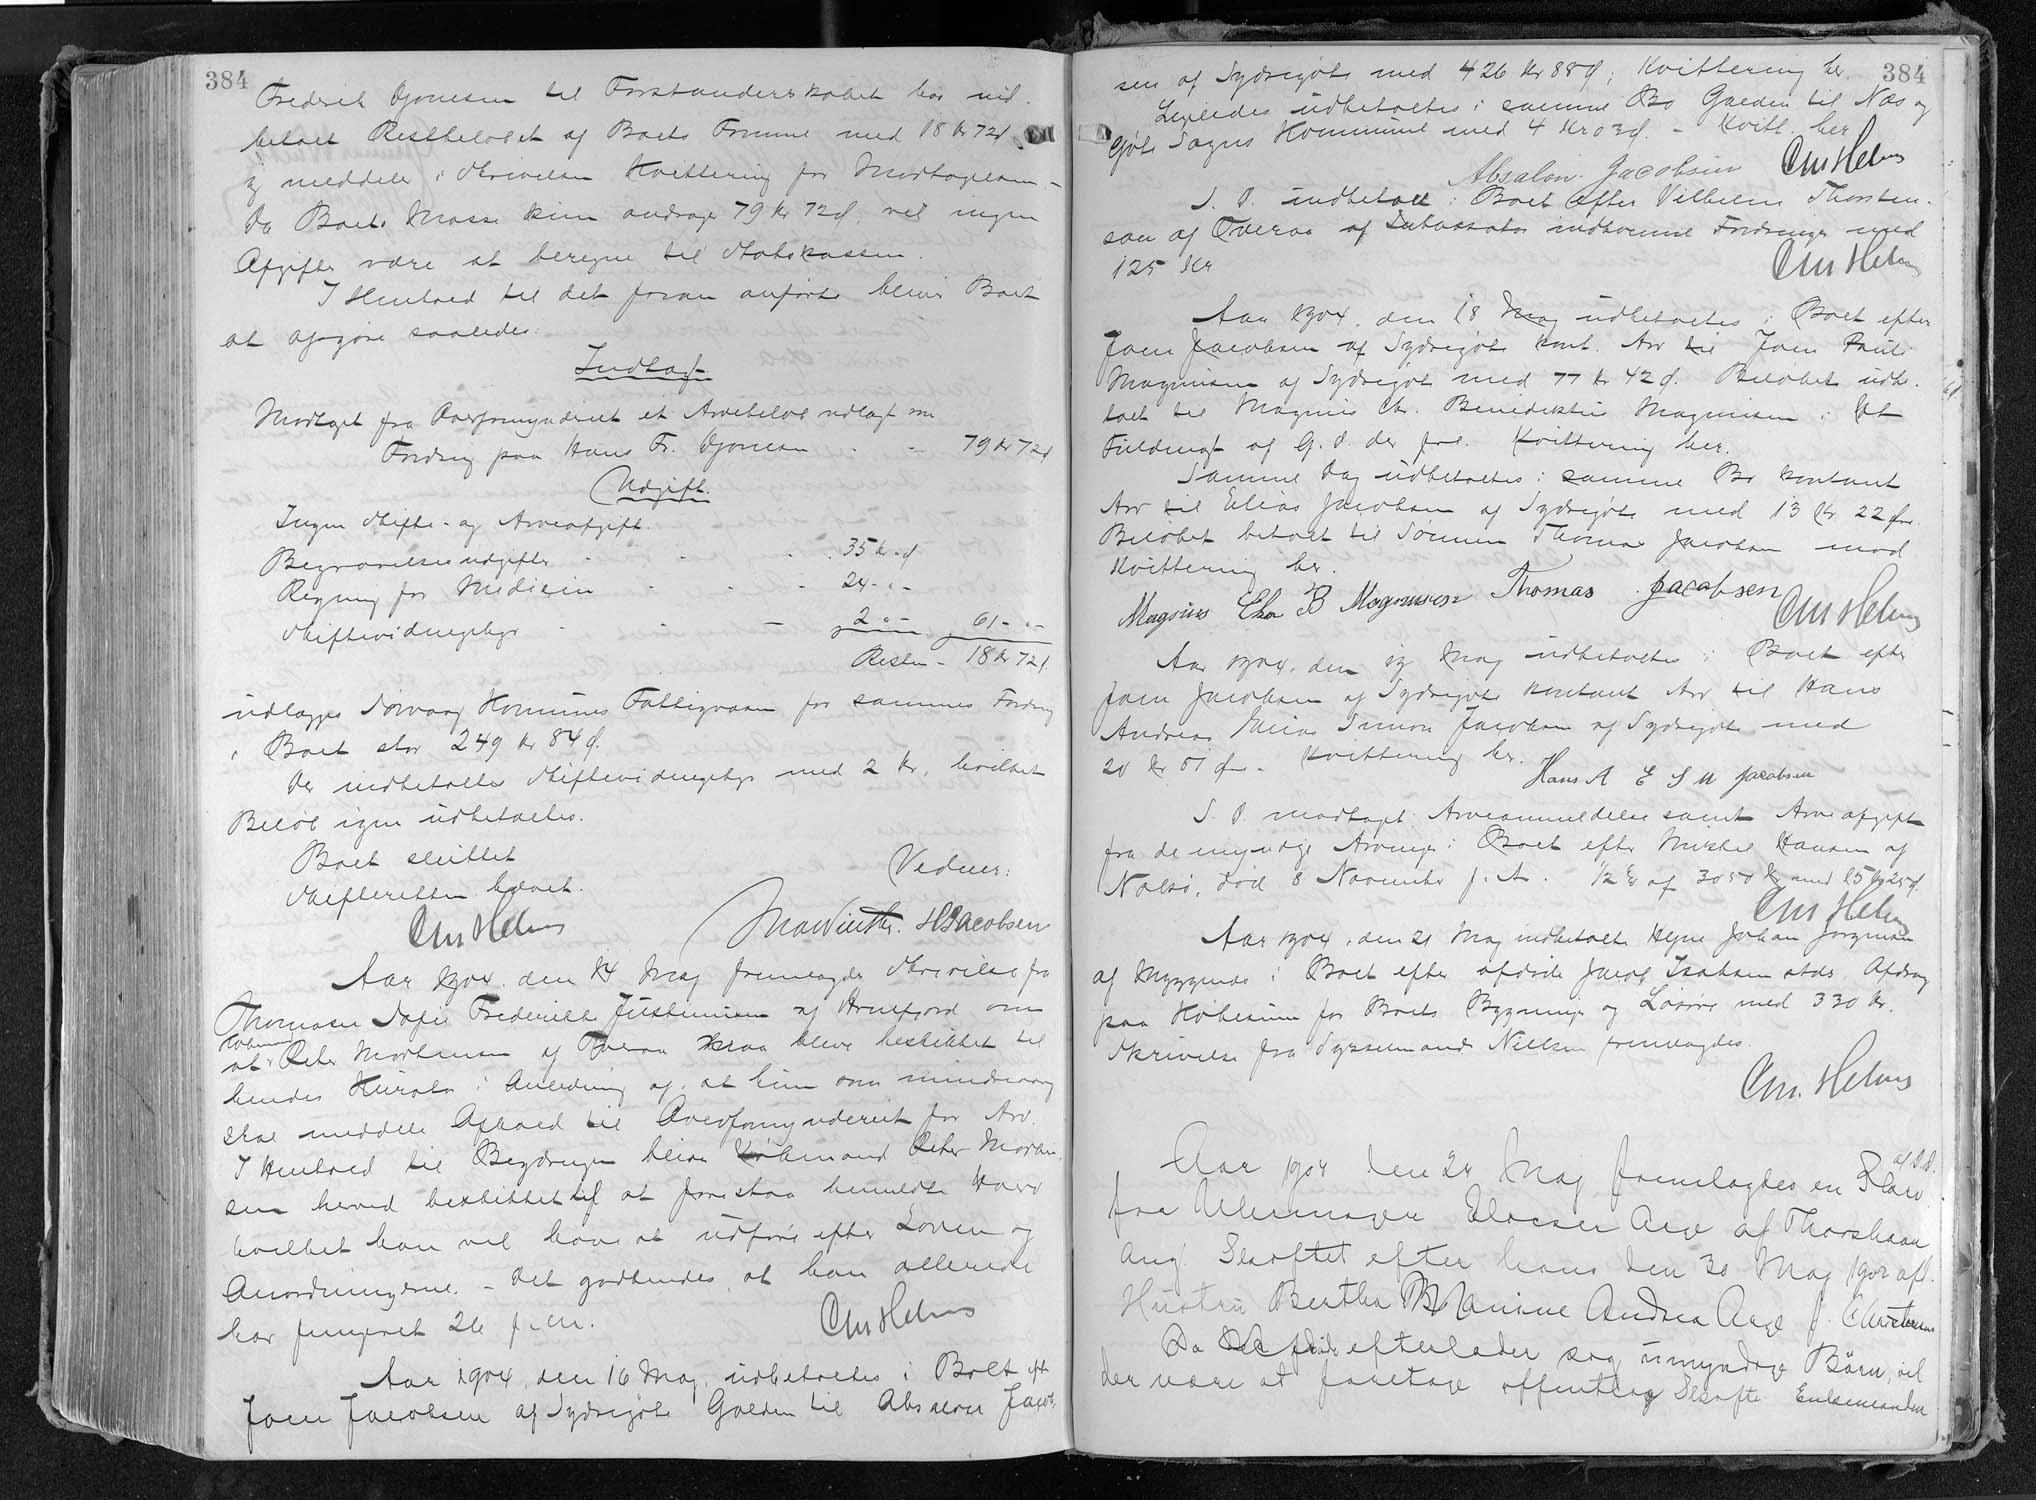 384
Frederik Djonesen til Forstanderskabet har ud-
betalt Restbeløbet af Boets Formue med 18 Kr 72 Ø
og meddeler i Skrivelsen Kvittering for Modtagelsen -
Da Boets Masse kun andrager 79 Kr 72 Ø, vil ingen
Afgifter være at beregne til Statskassen.
I Henhold til det foran anførte bliver Boet
at afgøre saaledes:
Indtægt
Modtaget fra Overformynderiet et Arvebeløb udlagt som
Fordring paa Hans Fr. Djonesen - - 79 Kr 72 Ø
Udgift.
Ingen Skifte- og Arveafgift.
Begravelsesudgifter - - - 35 Kr - Ø
Regning for Medicin - - - 24 - " -
Skiftevidnegebyr - - - 2 " - 61 - " -
Resten - 18 Kr 72 Ø
udlægges Sørvaag Kommunes Fattigvæsen for sammes Fordring
i Boet stor 249 Kr 84 Ø.
Der indbetaltes Skiftevidnegebyr med 2 Kr, hvilket
Beløb igen udbetaltes.
Boet sluttet
Skifteretten hævet.
Vidner:
Chr Helms
Winther. H Jacobsen
Aar 1904, den 14 Maj fremlagdes Skrivelse fra
Thomasea Sofie Frederikke Justinussen af om
Købmand
at Peter Mortensen af Tveraa maa blive beskikket til
hendes Kurator i Anledning af, at hun som mindreaarig
skal meddele Afkald til Overformynderiet for Arv.
I Henhold til Begæringen bliver Købmand Peter Morten-
sen herved beskikket til at forestaa bemeldte Hverv
hvilket han vil have at udføre efter Loven og
Anordningerne. - Det godkendes, at han allerede
har fungeret 26 f. M.
Chr Helms
Aar 1904, den 16 Maj, udbetaltes i Boet eft
Joen Jacobsen af Sydregøte Gælden til Absalon Jacob-
384
sen af Sydregøte med 426 Kr 88 Ø; Kvittering her.
Ligeledes udbetaltes i samme Bo Gælden til Næs og
Gøte Sogns Kommune med 4 Kr 03 Ø. - Kvitt. her
Absalon Jacobsen Chr Helms
S. D. indbetalt i Boet efter Vilhelm Thorsten-
sen af Tveraa af Inkassator indkomne Fordringer med
125 Kr
Chr Helms
Aar 1904, den 18 Maj udbetaltes i Boet efter
Joen Jacobsen af Sydregøte kont. Arv til Joen Pauli
Magnusen af Sydregøte med 77 Kr 42 Ø. Beløbet udbe-
talt til Magnus Chr. Benediktus Magnusen i flt
Fuldmagt af G. D. der frl. Kvittering her.
Samme Dag udbetaltes i samme Bo kontant
Arv til Elias Jacobsen af Sydregøte med 13 Kr 22 Øre.
Beløbet betalt til Sønnen Thomas Jacobsen mod
Kvittering her.
Magnus Chr B Magnussen Thomas Jacobsen
Chr Helms
Aar 1904, den 19 Maj udbetaltes i Boet efter
Joen Jacobsen af Sydregøte kontant Arv til Hans
Andreas Elias Simon Jacobsen af Sydregøte med
20 Kr 01 Ø - Kvittering her.
Hans A E S M Jacobsen
S. D. modtaget Arveanmeldelse samt Arveafgift
fra de myndige Arvinger i Boet efter Mikkel Hansen af
Nolsø, død 8 November f. A. - 1/2 % af 3050 Kr med 15 Kr 25 Ø.
Chr Helms
Aar 1904, den 21 Maj indbetalte Hejne Johan Jørgensen
af Myggenæs i Boet efter afdøde Jacob Isaksen stds Afdrag
paa Købesum for Boets Bygninger og Løsøre med 330 Kr.
Skrivelse fra Sysselmand Nielsen fremlagdes.
Chr. Helms
Aar 1904 den 24 Maj fremlagdes en Skriv. af D. D.
fra Uhrmager Eliesar Arge af Thorshavn
ang. Skiftet efter hans den 30 Maj 1902 afd.
Hustru Bertha M Anine Andrea Arge f. Christensen
Da Afdøde efterlader sig umyndige Børn, vil
der være at foretage offentlig Skifte Enkemanden